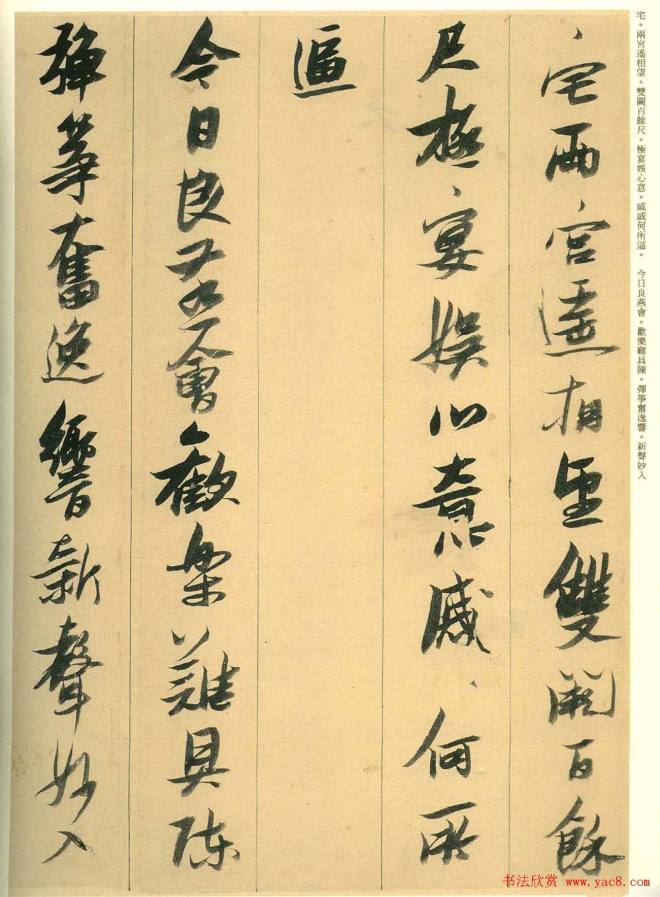 宅。兩宮遙相望。雙闕百餘尺。極宴娛心意。戚戚何所逼。　今日良燕會。歡樂難具陳。彈箏奮逸響。新聲妙入
宅兩宮遙相望雙闕百餘
尺極宴娛心意戚〻何所
逼
今日良燕會歡樂難具陳
彈箏奮逸響新聲妙入
书法欣赏 www.yac8.com